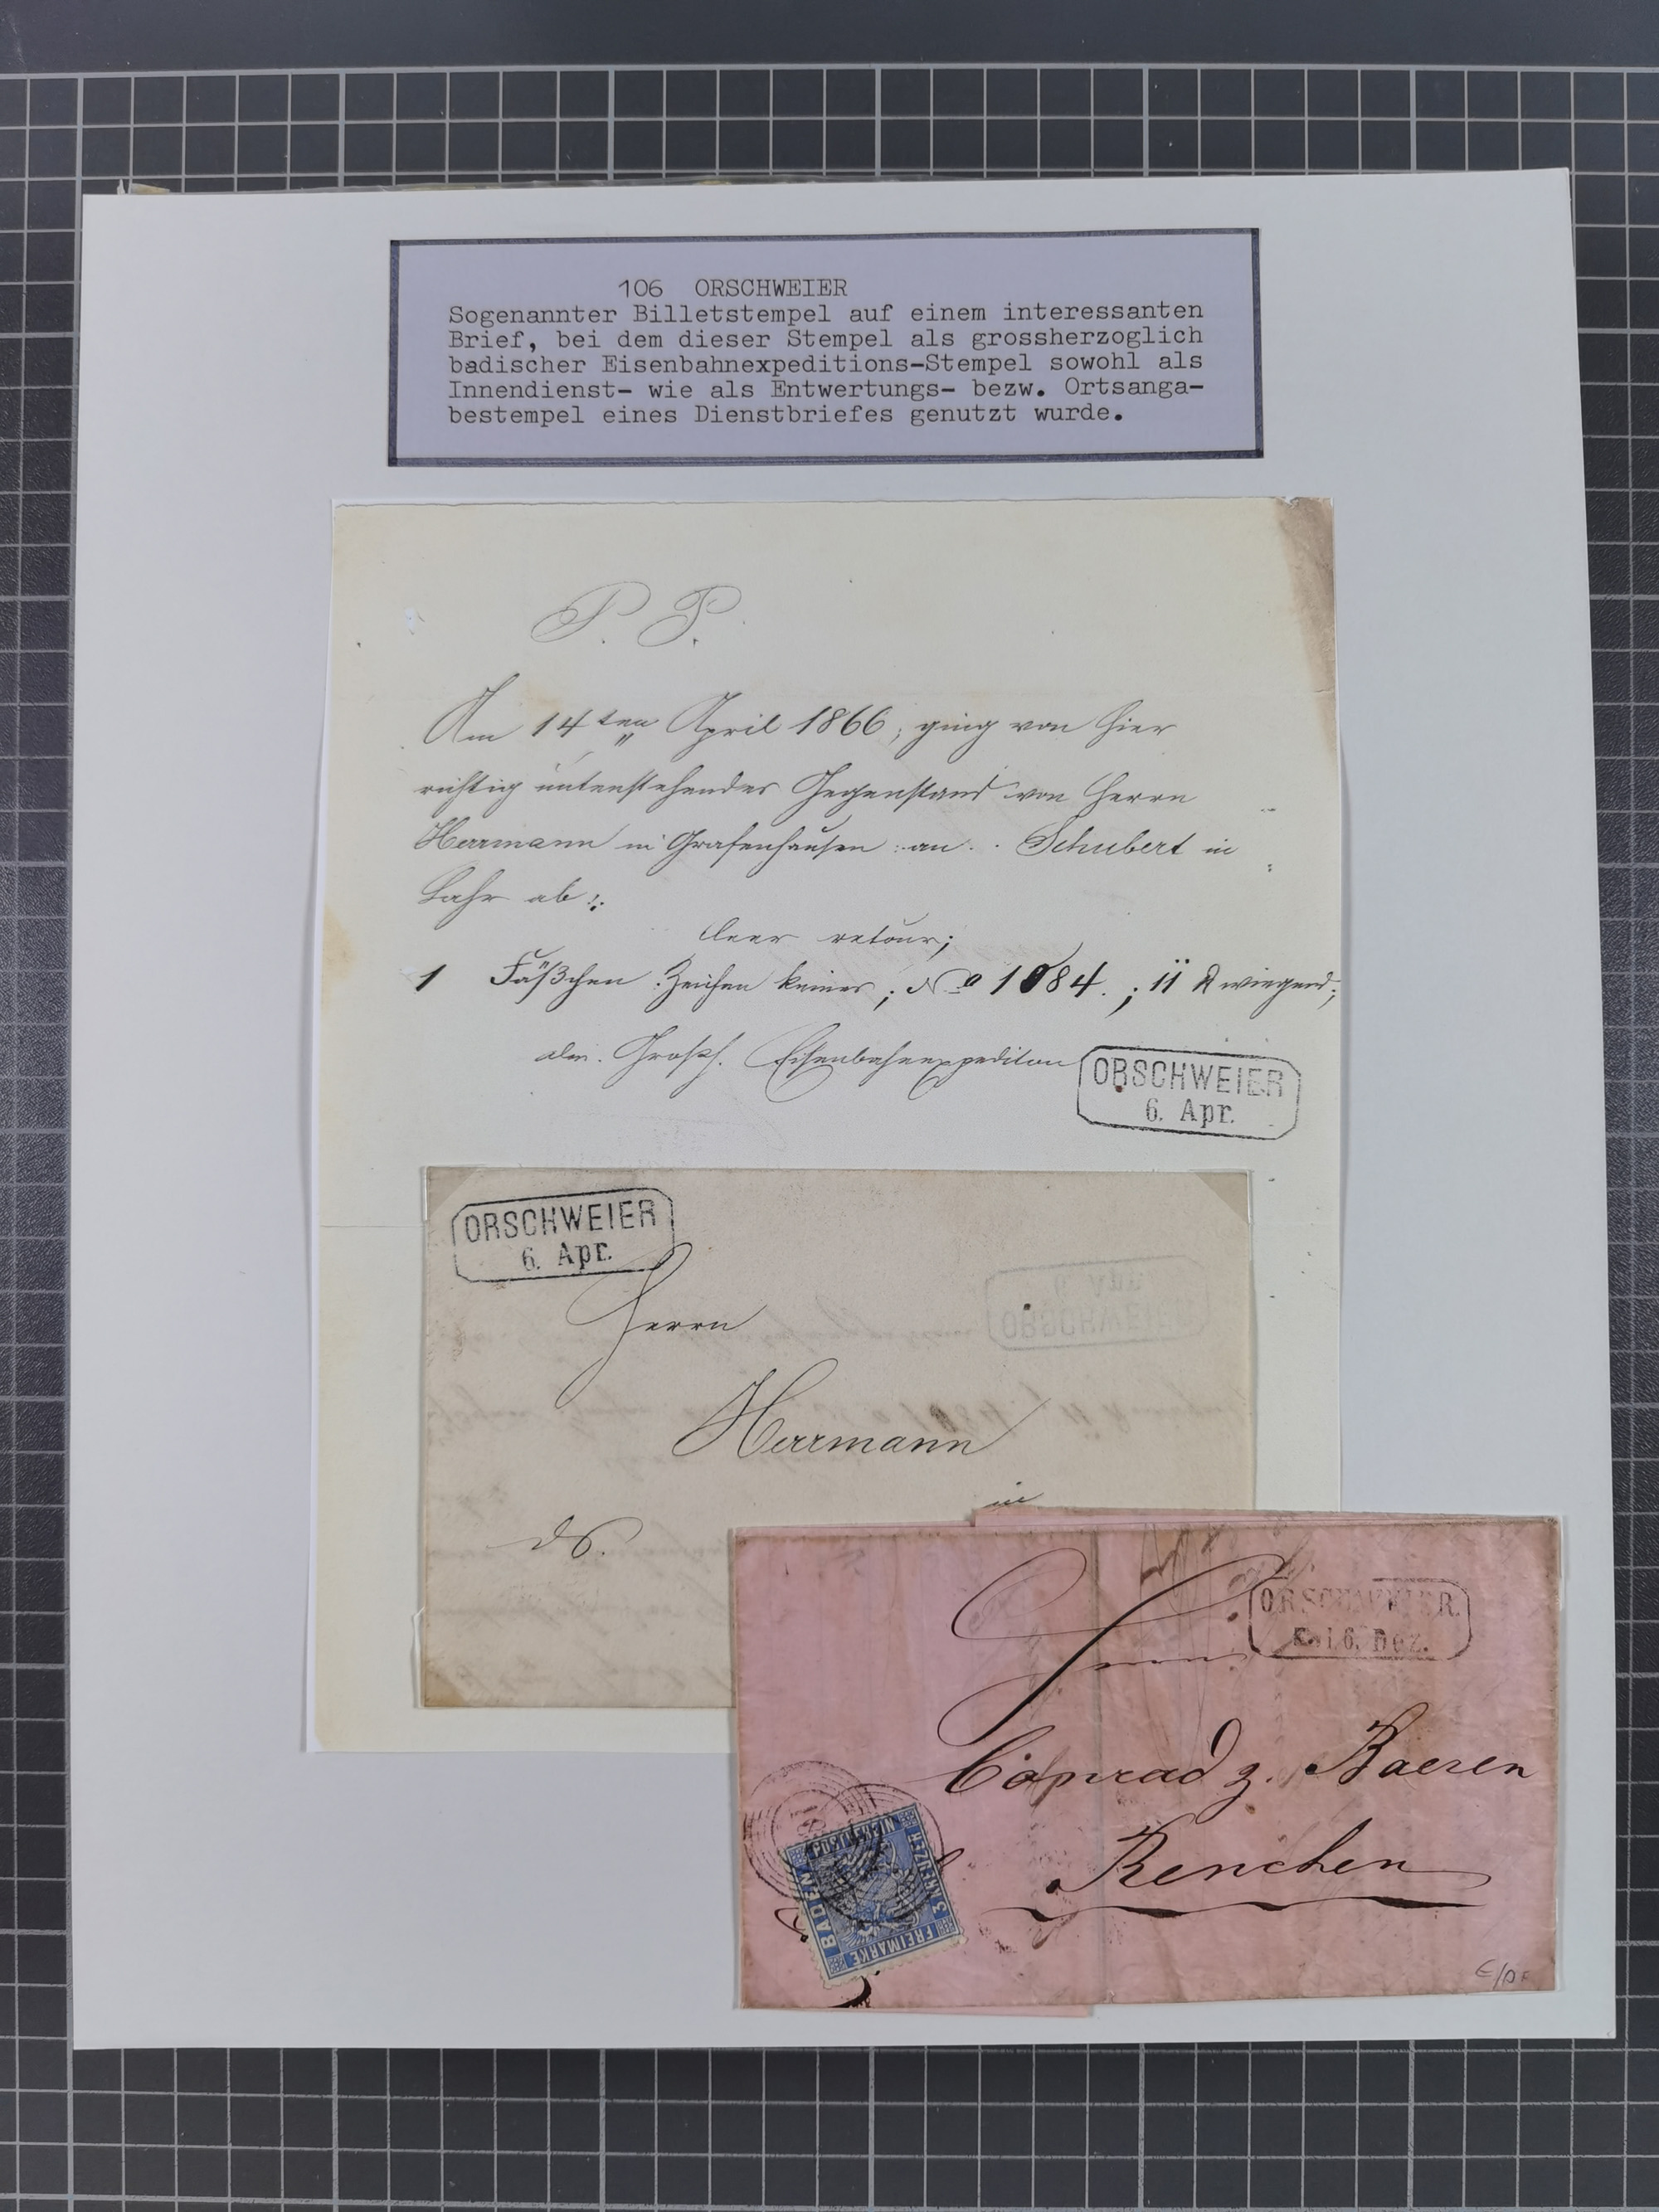 106 ORSCHWEIER
Sogenannter Billetstempel auf einem interessanten
Brief, bei dem dieser Stempel als grossherzoglich
badischer Eisenbahnexpeditions-Stempel sowohl als
Innendienst- wie als Entwertungs- bezw. Ortsanga-
bestempel eines Dienstbriefes genutzt wurde.
P. P.
Am 14ten April 1866, ging von hier
richtig untenstehender Gegenstand von Herrn
Herrmann in Grafenhausen an Schubert in
Lahr ab:
leer retour;
1 Fäßchen Zeichen keines; No 1084.; 11 ℔ wiegend;
Großh. Eisenbahnexpedition
ORSCHWEIER
6. Apr.
ORSCHWEIER
6. Apr.
Herrn
Herrmann
in
ORSCHWEIER
6. Apr.
ORSCHWEIER.
16. Dez.
Herrn
Conrad z. Baeren
Renchen
BADEN
POSTVEREIN
3 KREUZER
FREIMARKE